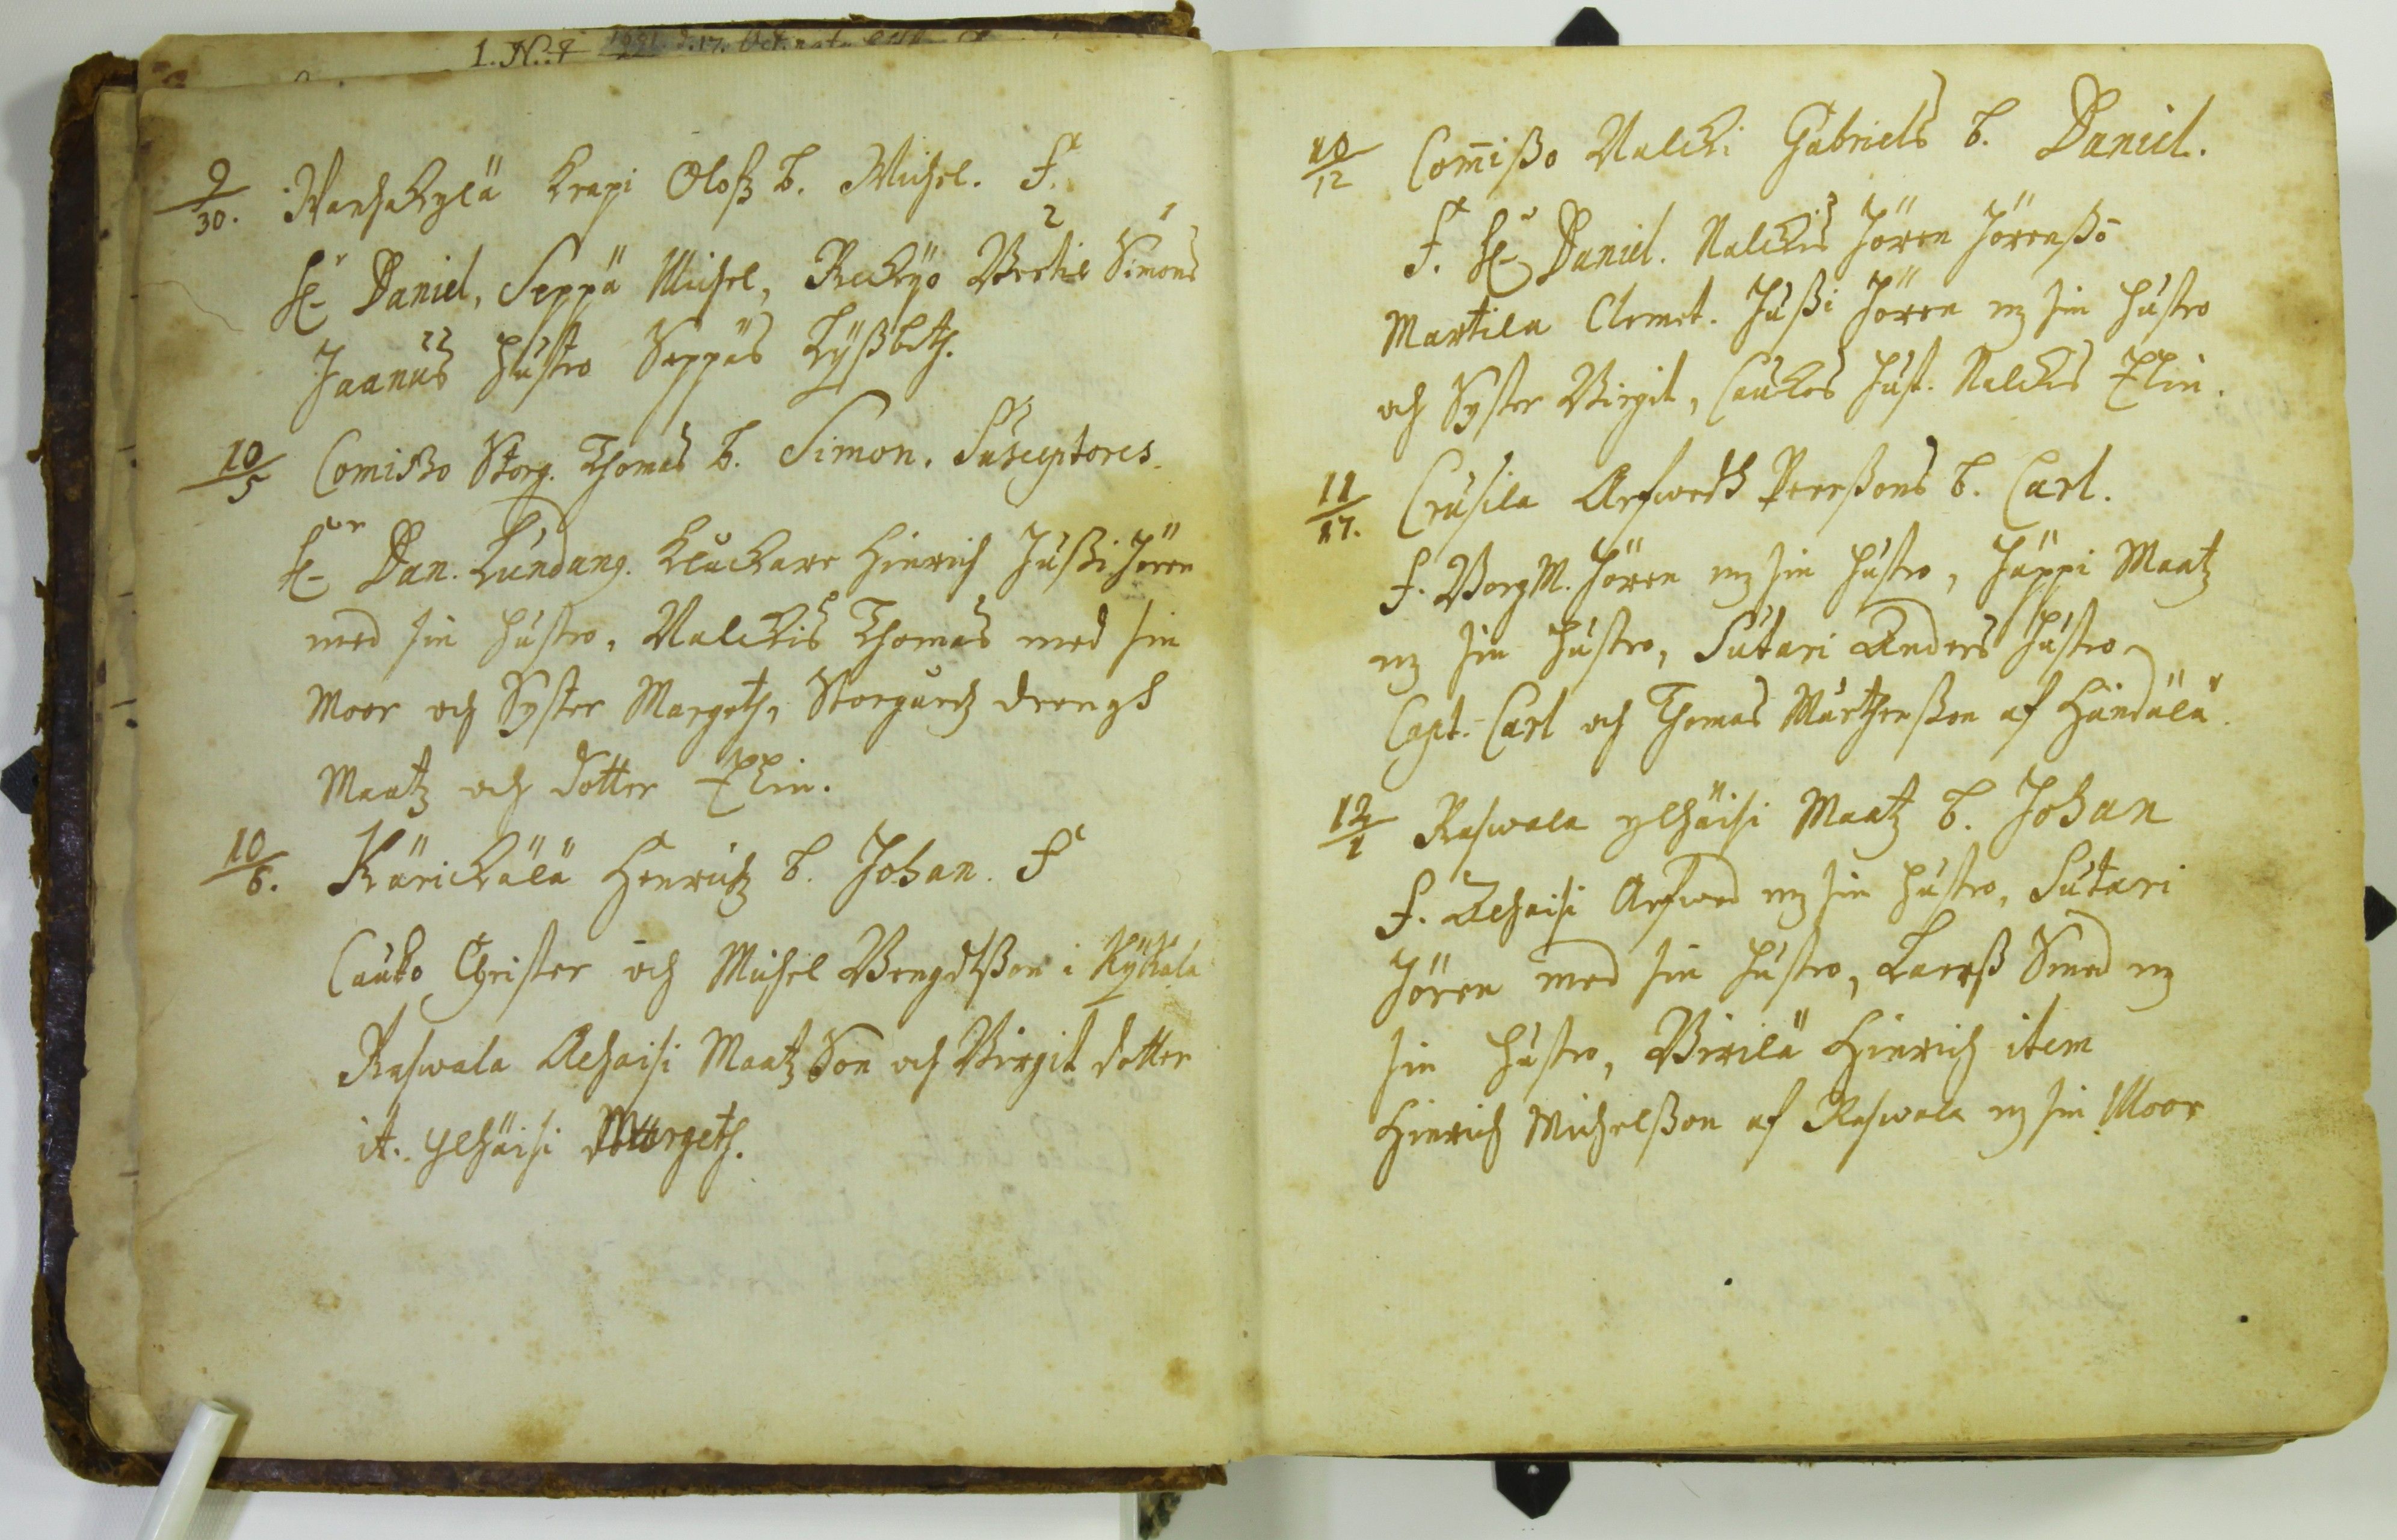 1. N. 4
9/30. Wanhakylä Krapi Oloffz b. Michel. F.
H. Daniel, Seppä Michel, Reckyö Bertil Simons
Jaanus hustro Seppäs Lyßbeth.
10/5 Comißo Storg. Thomas b. Simon. Susceptores.
H. Dan. Lundang. Kluckare Hinrich Jußi Jören
med sin hustro, Nalckis Thomas med sin
Moor och Syster Margeth, Storgurds drengh
Maatz och dotter Elin.
10/6. Kärickälä Henrichz b. Johan. F
Cauko Christer och Michel Bengdtßon i Kykälä
Raswala Alhaisi Maatz Son och Birgit dotter
it. ylhäisi Margeth.
10/12 Com̄ißo Nalcki Gabriels b. Daniel.
F. H. Daniel. Nalckis Jören Jörenßo
Martila Clemet. Jußi Jören m sin hustro
och Syster Birgit, Caukos hust. Nalckis Elin.
11/17. Crusila Arfwedh Peerßons b. Carl.
F. Borgm. Jören m sin hustro, Jäppi Maatz
m sin hustro, Sutari Anders hustro
Capt. Carl och Thomas Mårthenßon af Händälä.
12/1 Raswala ylhäisi Maatz b. Johan
F. Alhaisi Arfwed m sin hustro, Sutari
Jören med sin hustro, Larrß Smed m
sin hustro, Birilä Hinrich item
Hinrich Michelßon af Raswala m sin Moor